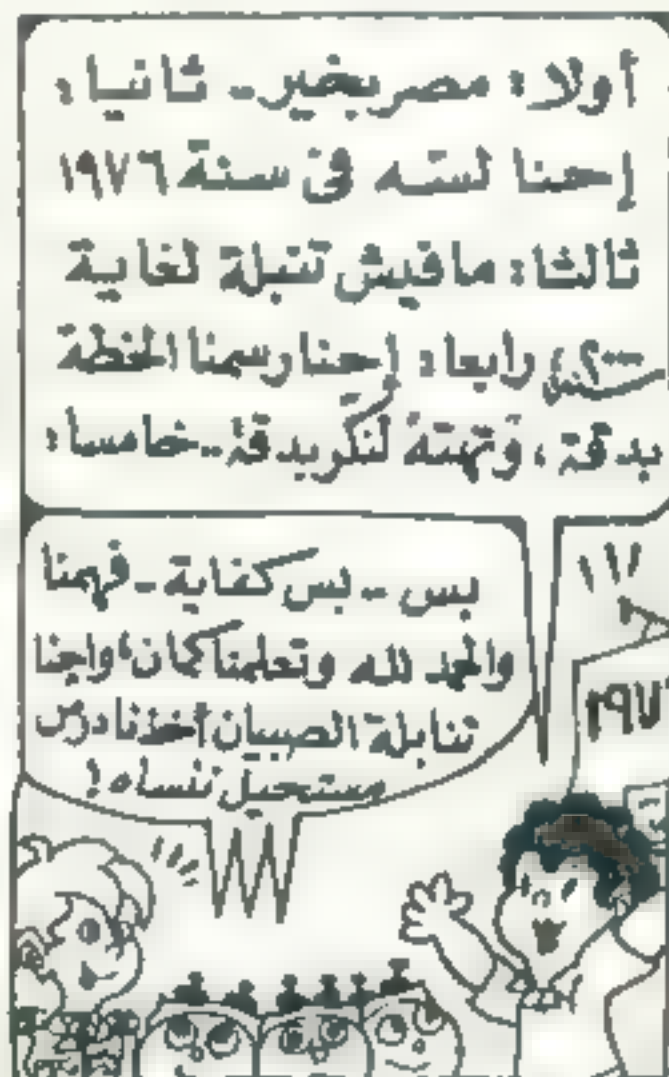 أولا: مصر بخير - ثانيا:
إحنا لسه فى سنة ١٩٧٦
ثالثا: مافيش تنبلة لغاية
٢٠٠٠، رابعا: إحنا رسمنا الخطة
بدقة، وتهته لتكر بدقة.. خامسا:
بس -- بس كفاية - فهمنا
والحمد لله وتعلمنا كمان، واحنا
تنابلة الصبيان أخذنا درس
مستحيل ننساه!
١٩٧